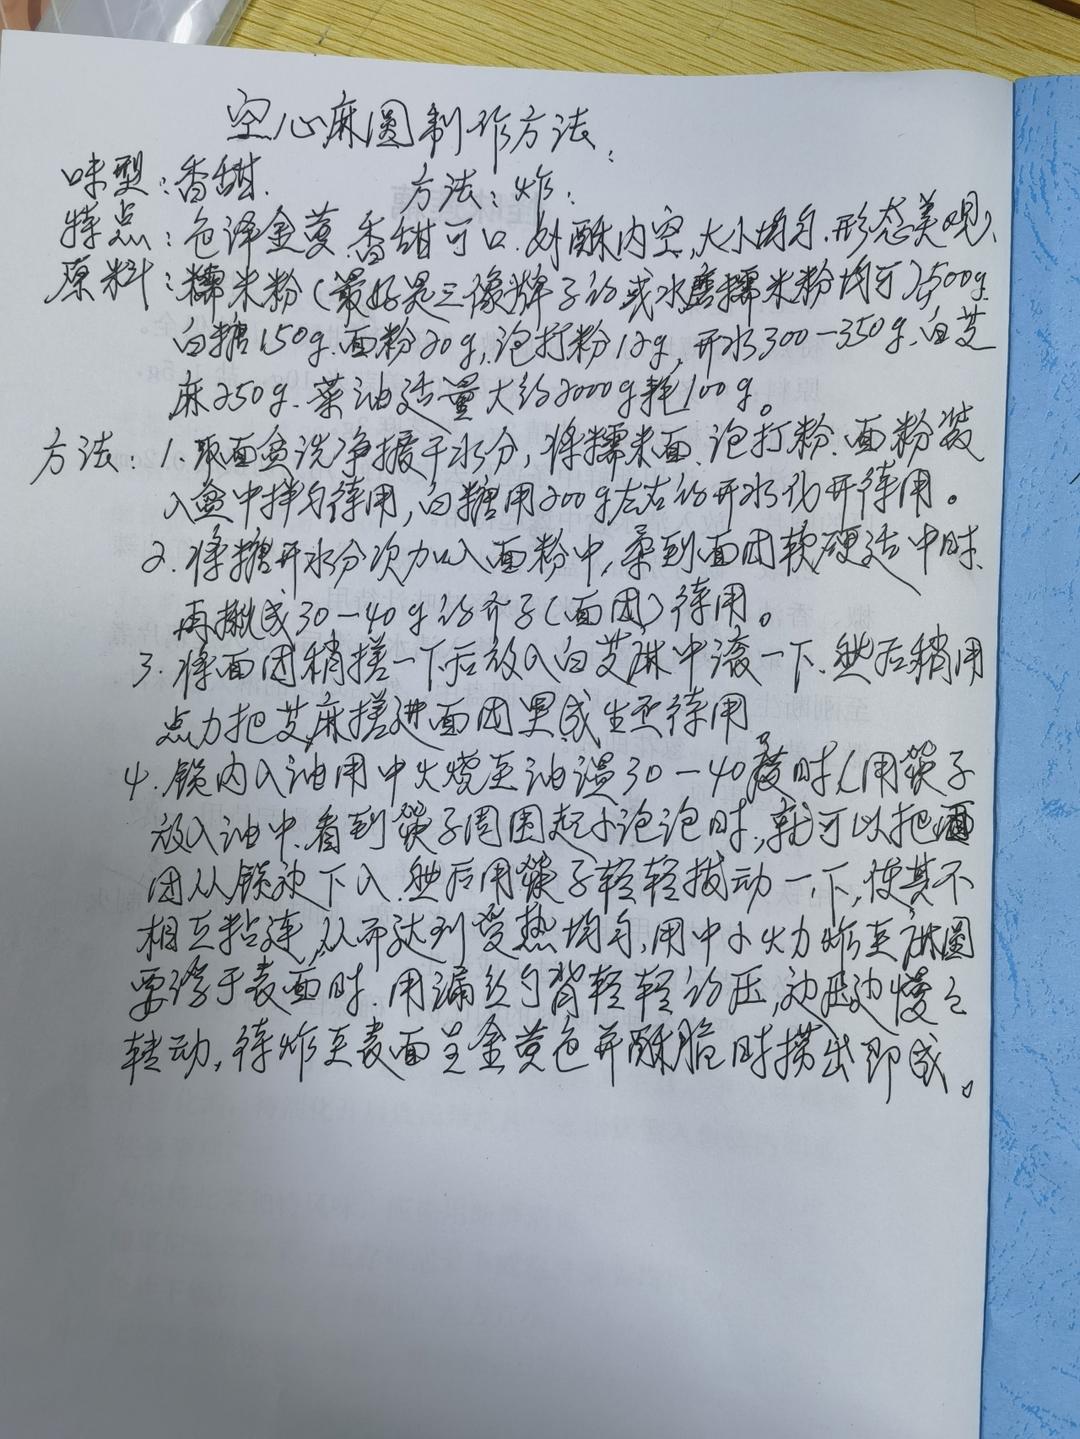 空心麻圆制作方法:
味型:香甜. 方法:炸.
特点:色泽金黄.香甜可口.外酥内空,大小均匀.形态美观、
原料:糯米粉(最好是三像牌子的或水磨糯米粉均可)500g.
白糖150g.面粉20g,泡打粉12g,开水300—350g.白芝
麻250g.菜油适量大约2000g耗100g。
方法:1.取面盆洗净揩干水分,将糯米面.泡打粉.面粉装
入盆中拌匀待用,白糖用200g左右的开水化开待用。
2.将糖开水分次加入面粉中,柔到面团软硬适中时.
再揪成30—40g的齐子(面团)待用。
3.将面团稍搓一下后放入白芝麻中滚一下.然后稍用
点力把芝麻搓进面团里成生丕待用
4.锅内入油用中火烧至油温30—40度时(用筷子
放入油中.看到筷子周围起小泡泡时,就可以把面
团从锅边下入.然后用筷子轻轻拨动一下,使其不
相互粘连,从而达到受热均匀,用中小火力炸至麻圆
要浮于表面时.用漏丝勺背轻轻的压,边压边慢慢
转动,待炸至表面呈金黄色并酥脆时捞出即成。